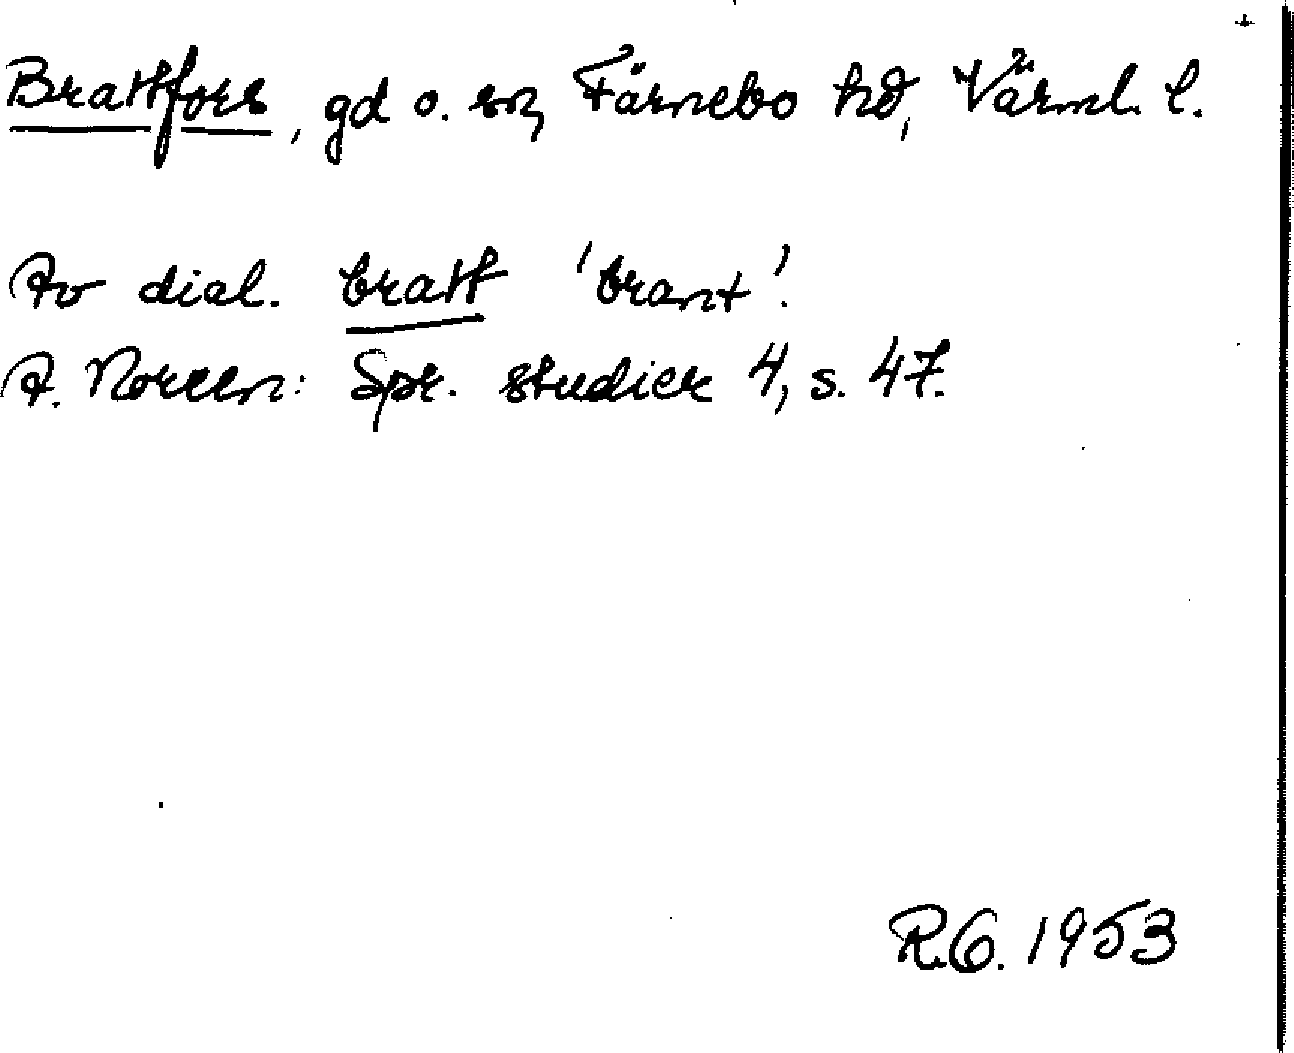 Brattfors, gd o. sn, Färnebo hd, Värml. l.
Av dial. bratt 'brant'.
A. Noreen: Spr. studier 4, s. 47.
R.G. 1953